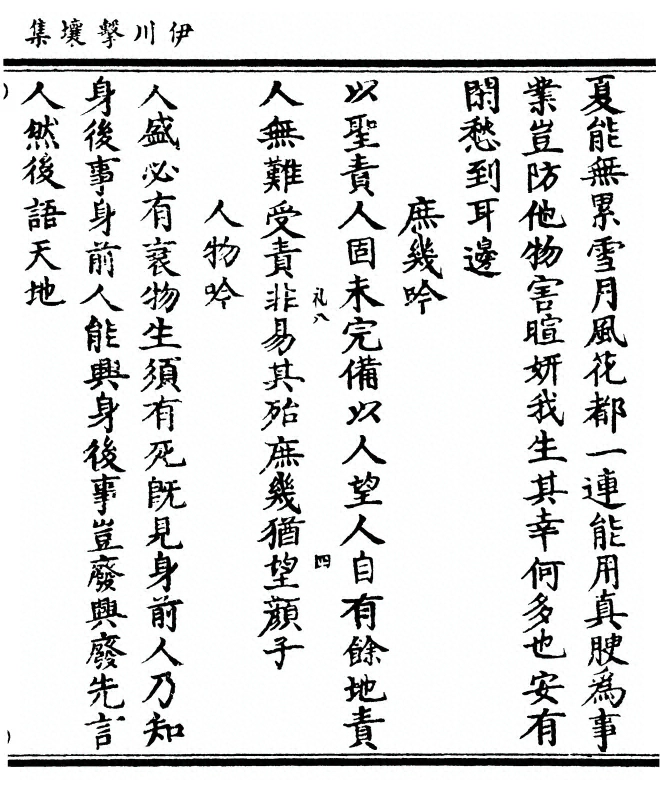 伊川擊壤集
夏能無累雪月風花都一連能用真腴為事
業豈防他物害暄妍我生其幸何多也安有
閑愁到耳邊
庶幾吟
以聖責人固未完備以人望人自有餘地責
礼八
四
人無難受責非易其殆庶幾猶望顔子
人物吟
人盛必有衰物生須有死既見身前人乃知
身後事身前人能興身後事豈廢興廢先言
人然後語天地